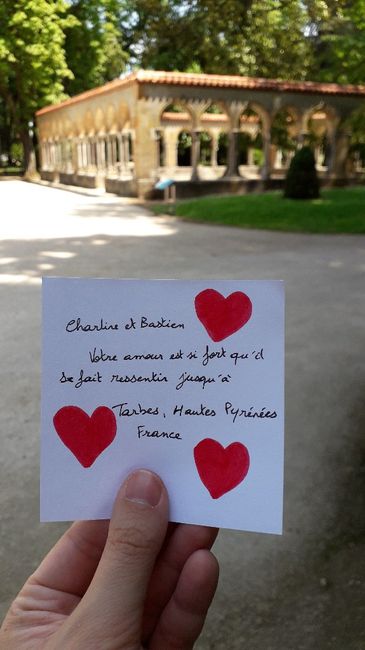 Charline et Bastien
Votre amour est si fort qu'il
se fait ressentir jusqu'à
Tarbes, Hautes Pyrénées
France